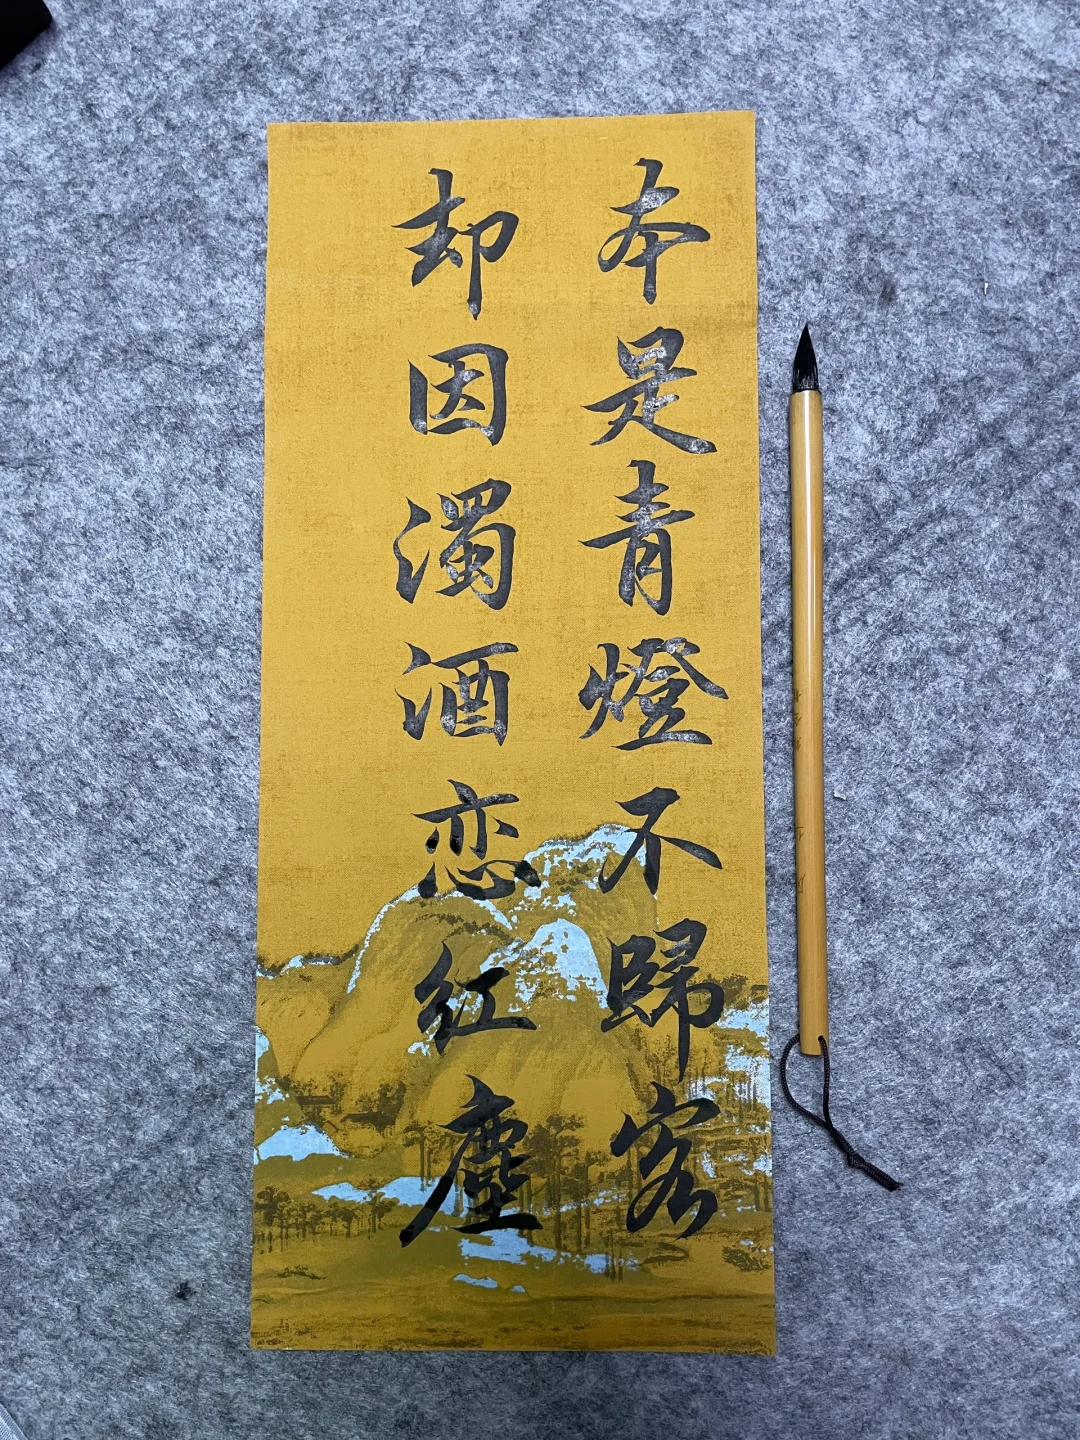 本是青燈不歸客
却因濁酒恋红塵